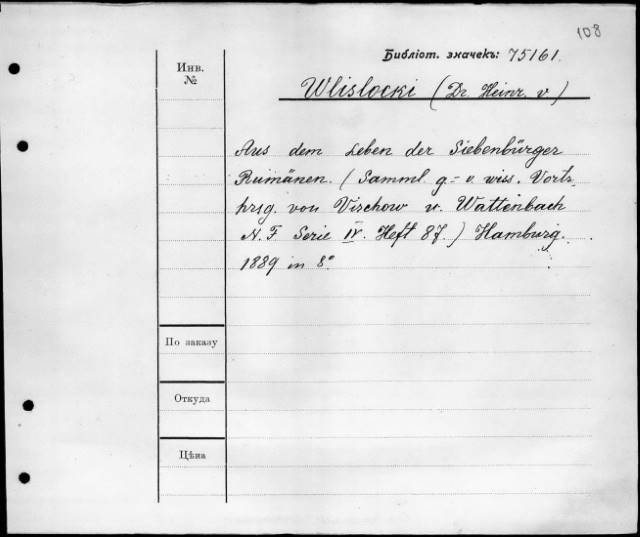 108
Библіот. значекъ: 75161.
Инв. №
Wlislocki (Dr. Heinr. v)
Aus dem Leben der Siebenbürger
Rumänen. (Samml. g.= v. wiss. Vortr.
hrsg. von Virchow u. Wattenbach
N. F. Serie IV. Heft 87.) Hamburg.
1889 in 8°
По заказу
Откуда
Цѣна